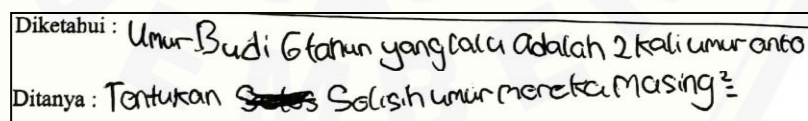 Diketahui : Umur Budi 6 tahun yang lalu adalah 2 kali umur anto
Ditanya : Tentukan Selisih umur mereka masing²